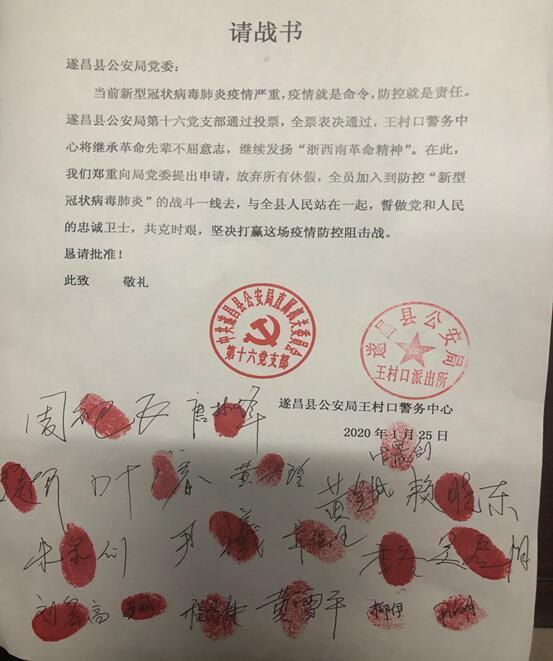 请战书
遂昌县公安局党委：
当前新型冠状病毒肺炎疫情严重，疫情就是命令，防控就是责任。
遂昌县公安局第十六党支部通过投票，全票表决通过，王村口警务中
心将继承革命先辈不屈意志，继续发扬“浙西南革命精神”。在此，
我们郑重向局党委提出申请，放弃所有休假，全员加入到防控“新型
冠状病毒肺炎”的战斗一线去，与全县人民站在一起，誓做党和人民
的忠诚卫士，共克时艰，坚决打赢这场疫情防控阻击战。
恳请批准！
此致 敬礼
中共遂昌县公安局直属机关委员会
第十六党支部
遂昌县公安局
王村口派出所
遂昌县公安局王村口警务中心
2020 年 1 月 25 日
赖晓东
黄雪平
柳伊